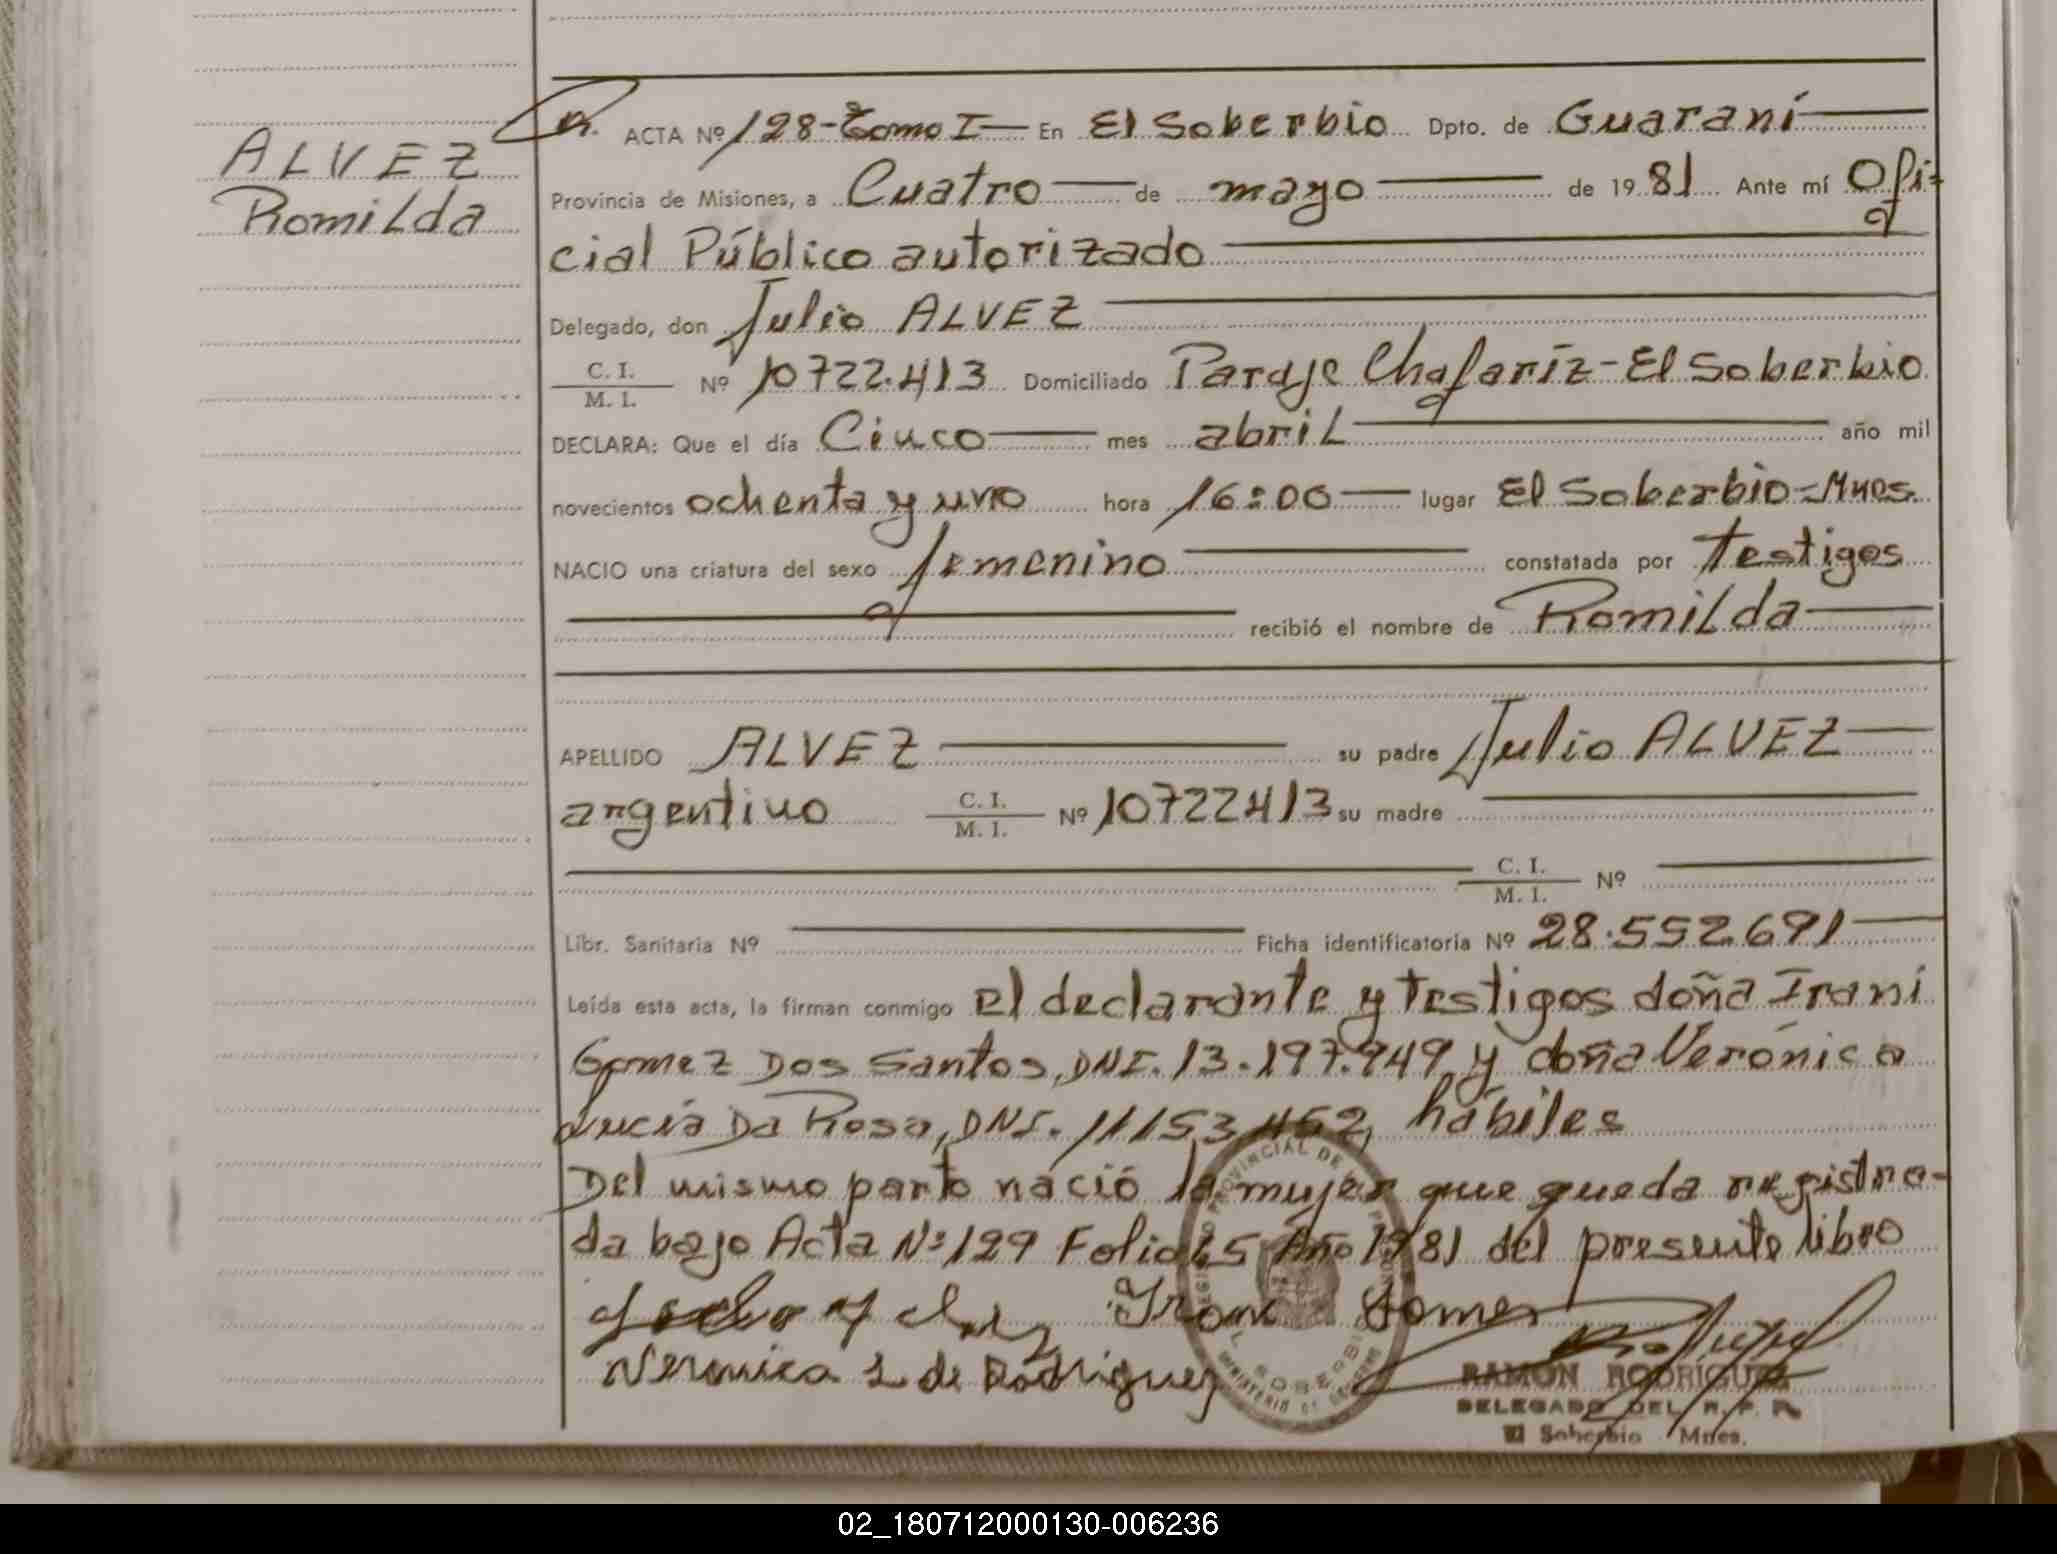 ALVEZ
Romilda
ACTA Nº 128-Tomo I En El Soberbio Dpto. de Guaraní
Provincia de Misiones, a Cuatro de mayo de 1981 Ante mí Ofi-
cial Público autorizado
Delegado, don Julio ALVEZ
C. I.
M. I. Nº 10722.413 Domiciliado Paraje Chafaríz-El Soberbio
DECLARA: Que el día Cinco mes abril año mil
novecientos ochenta y uno hora 16:00 lugar El Soberbio-Mnes.
NACIO una criatura del sexo femenino constatada por testigos
recibió el nombre de Romilda
APELLIDO ALVEZ su padre Julio ALVEZ
argentino C. I.
M. I. Nº 10722413 su madre
C. I.
M. I. Nº
Libr. Sanitaria Nº Ficha identificatoria Nº 28.552.691
Leída esta acta, la firman conmigo el declarante y testigos doña Irani
Gomez Dos Santos, DNI. 13.197.949 y doña Verónica
Lucía Da Rosa, DNI. 11153.452, hábiles
Del mismo parto nació la mujer que queda registra-
da bajo Acta Nº 129 Folio 65 Año 1981 del presente libro
Irani Gomes
Veronica L de Rodriguez
RAMON RODRÍGUEZ
DELEGADO DEL R. P. P.
El Soberbio Mnes.
02_180712000130-006236